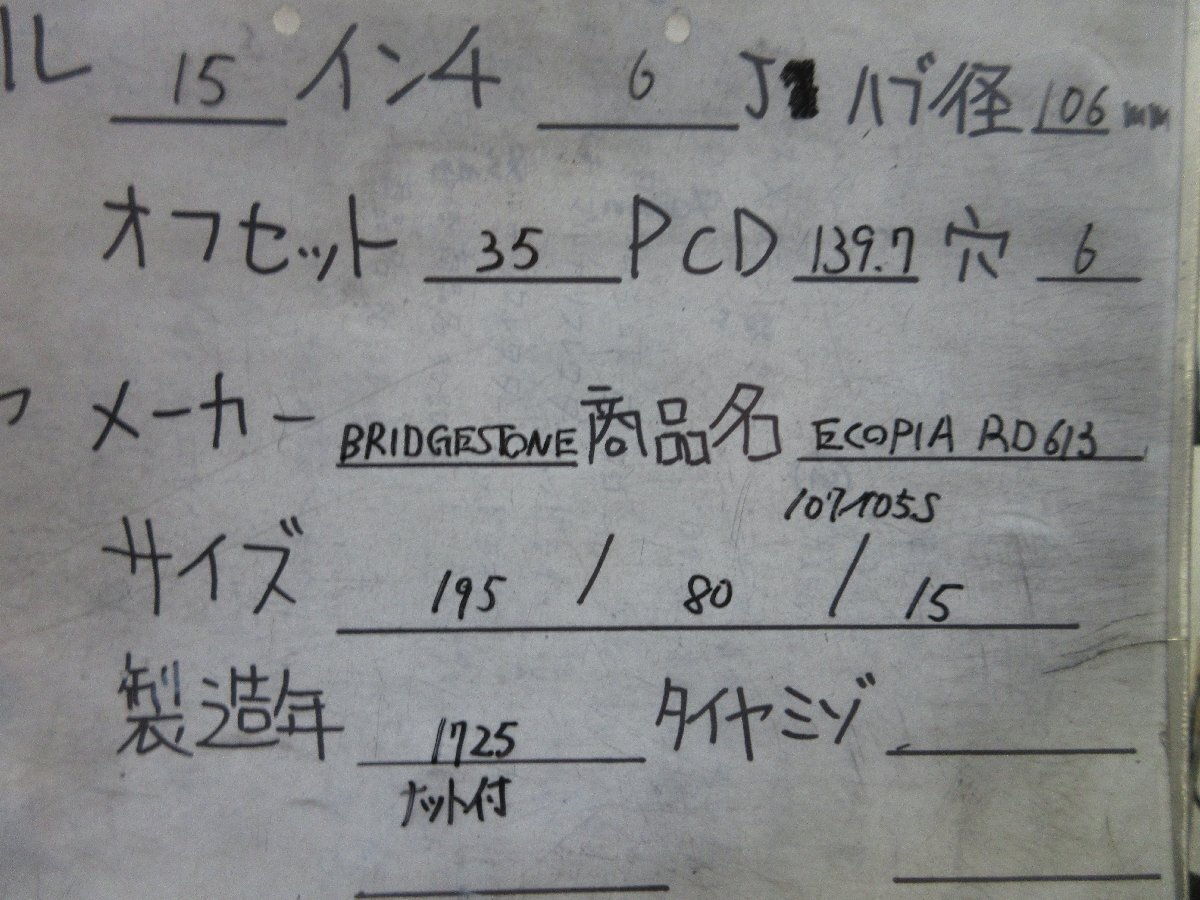 ル 15 インチ 6 J ハブ径 106 mm
オフセット 35 PCD 139.7 穴 6
メーカー BRIDGESTONE 商品名 ECOPIA RD613
107/105S
サイズ 195 / 80 / 15
製造年 1725 タイヤミゾ
ナット付